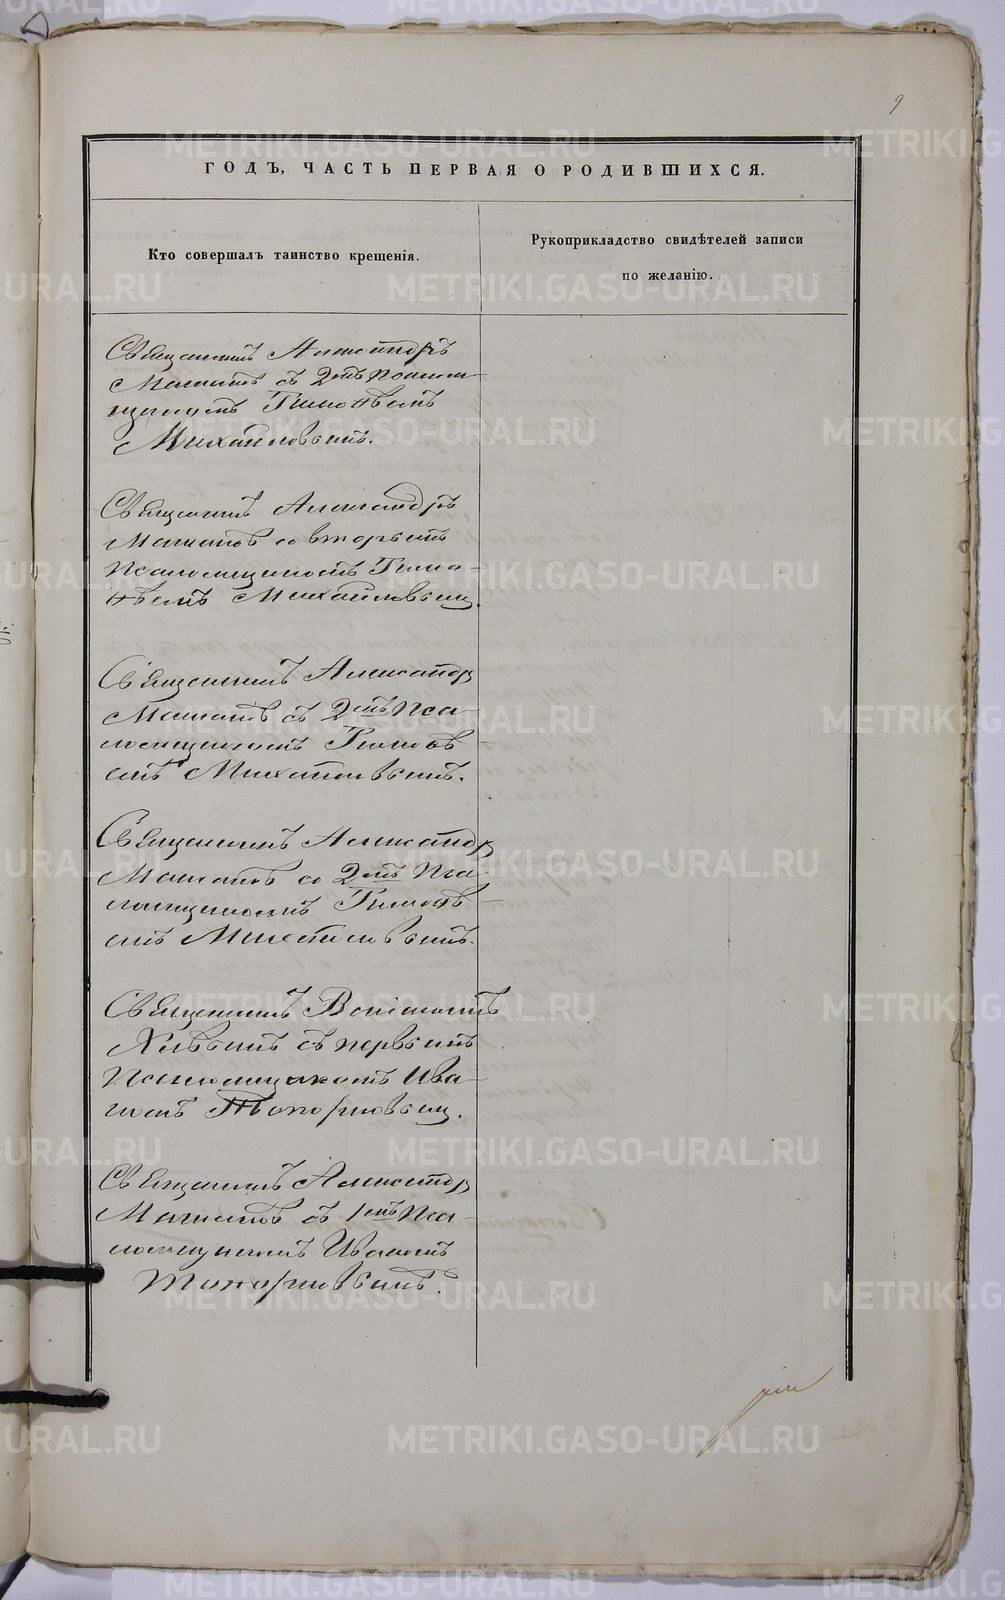 9
ГОДЪ, ЧАСТЬ ПЕРВАЯ О РОДИВШИХСЯ.
Кто совершалъ таинство крещенія.
Рукоприкладство свидѣтелей записи
по желанію.
Священникъ Александръ
съ 2мъ псалом-
щикомъ Тимофѣемъ
Михайловскимъ.
Священникъ Александръ
со вторымъ
псаломщикомъ Тимо-
фѣемъ Михайловским.
Священникъ Александр
съ 2мъ пса-
ломщикомъ Тимофѣ
емъ Михайловскимъ.
Священникъ Александр
со 2мъ пса-
ломщикомъ Тимофѣ-
емъ Михайловскимъ.
Священникъ
съ первымъ
псаломщикомъ Ива-
номъ Топорковским.
Священникъ Александр
съ 1мъ пса-
ломщикомъ Иваномъ
Топорковскимъ.
METRIKI.GASO-URAL.RU